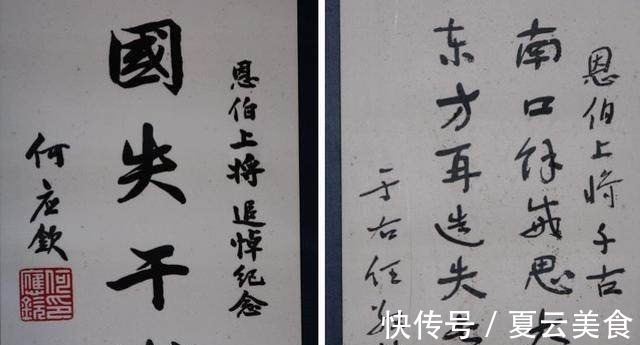 恩伯上将追悼紀念
國失干
何应欽
何應欽印
恩伯上将千古
南口馀威思
东方再造失
于右任
快传号/夏云美食